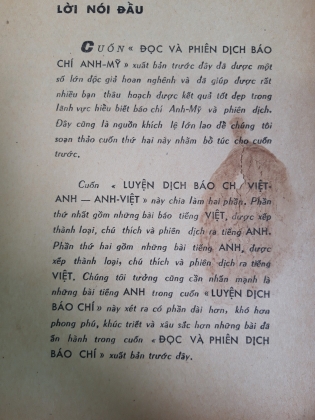 LỜI NÓI ĐẦU
CUỐN « ĐỌC VÀ PHIÊN DỊCH BÁO
CHÍ ANH-MỸ » xuất bản trước đây đã được một
số lớn độc giả hoan nghênh và đã giúp được rất
nhiều bạn thâu hoạch được kết quả tốt đẹp trong
lãnh vực hiểu biết báo chí Anh-Mỹ và phiên dịch.
Đây cũng là nguồn khích lệ lớn lao để chúng tôi
soạn thảo cuốn thứ hai này nhằm bổ túc cho cuốn
trước.
Cuốn « LUYỆN DỊCH BÁO CH/ VIỆT-
ANH — ANH-VIỆT » này chia làm hai phần. Phần
thứ nhất gồm những bài báo tiếng VIỆT, được xếp
thành loại, chú thích và phiên dịch ra tiếng ANH.
Phần thứ hai gồm những bài tiếng ANH, được
xếp thành loại, chú thích và phiên dịch ra tiếng
VIỆT. Chúng tôi tưởng cũng cần nhấn mạnh là
những bài tiếng ANH trong cuốn «LUYỆN DỊCH
BÁO CHÍ» này xét ra có phần dài hơn, khó hơn
phong phú, khúc triết và xâu sắc hơn những bài đã
ấn hành trong cuốn « ĐỌC VÀ PHIÊN DỊCH
BÁO CHÍ » xuất bản trước đây.